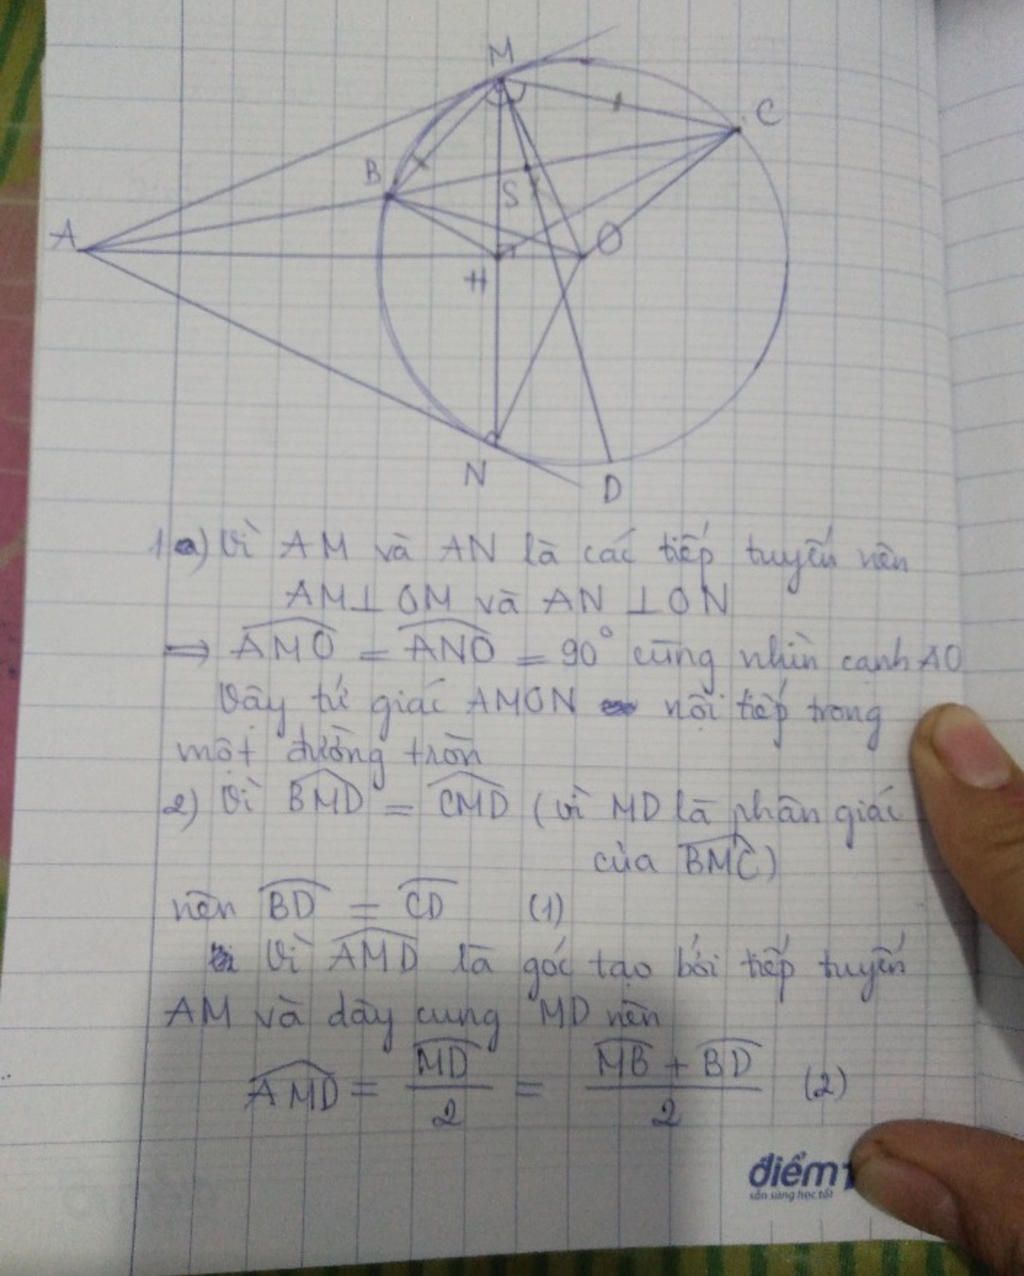 M
C
B
S
A
O
H
N
D
1a) Vì AM và AN là các tiếp tuyến nên
AM⊥OM và AN⊥ON
⇒ AMO = ANO = 90° cùng nhìn cạnh AO
Vậy tứ giác AMON nội tiếp trong
một đường tròn
2) Vì BMD = CMD (vì MD là phân giác
của BMC)
nên BD = CD (1)
Vì AMD là góc tạo bởi tiếp tuyến
AM và dây cung MD nên
AMD = MD/2 = MB + BD/2 (2)
điểm
sẵn sàng học tốt